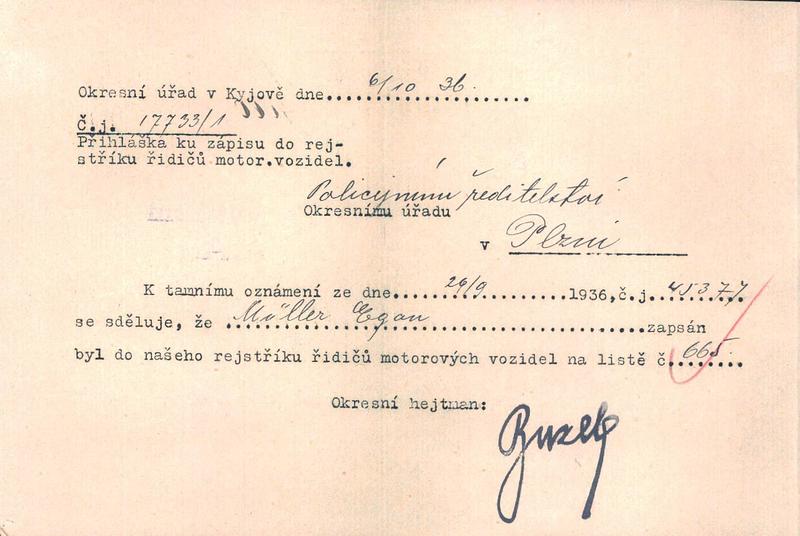 Okresní úřad v Kyjově dne....6/10 36.......
Č.j. 17733/1
Přihláška ku zápisu do rej-
stříku řidičů motor.vozidel.
Policejnímu ředitelství
Okresnímu úřadu
v Plzni
K tamnímu oznámení ze dne.....26/9.........1936,č.j.45377
se sděluje, že ...Müller Egon.......................zapsán
byl do našeho rejstříku řidičů motorových vozidel na listě č.665....
Okresní hejtman: